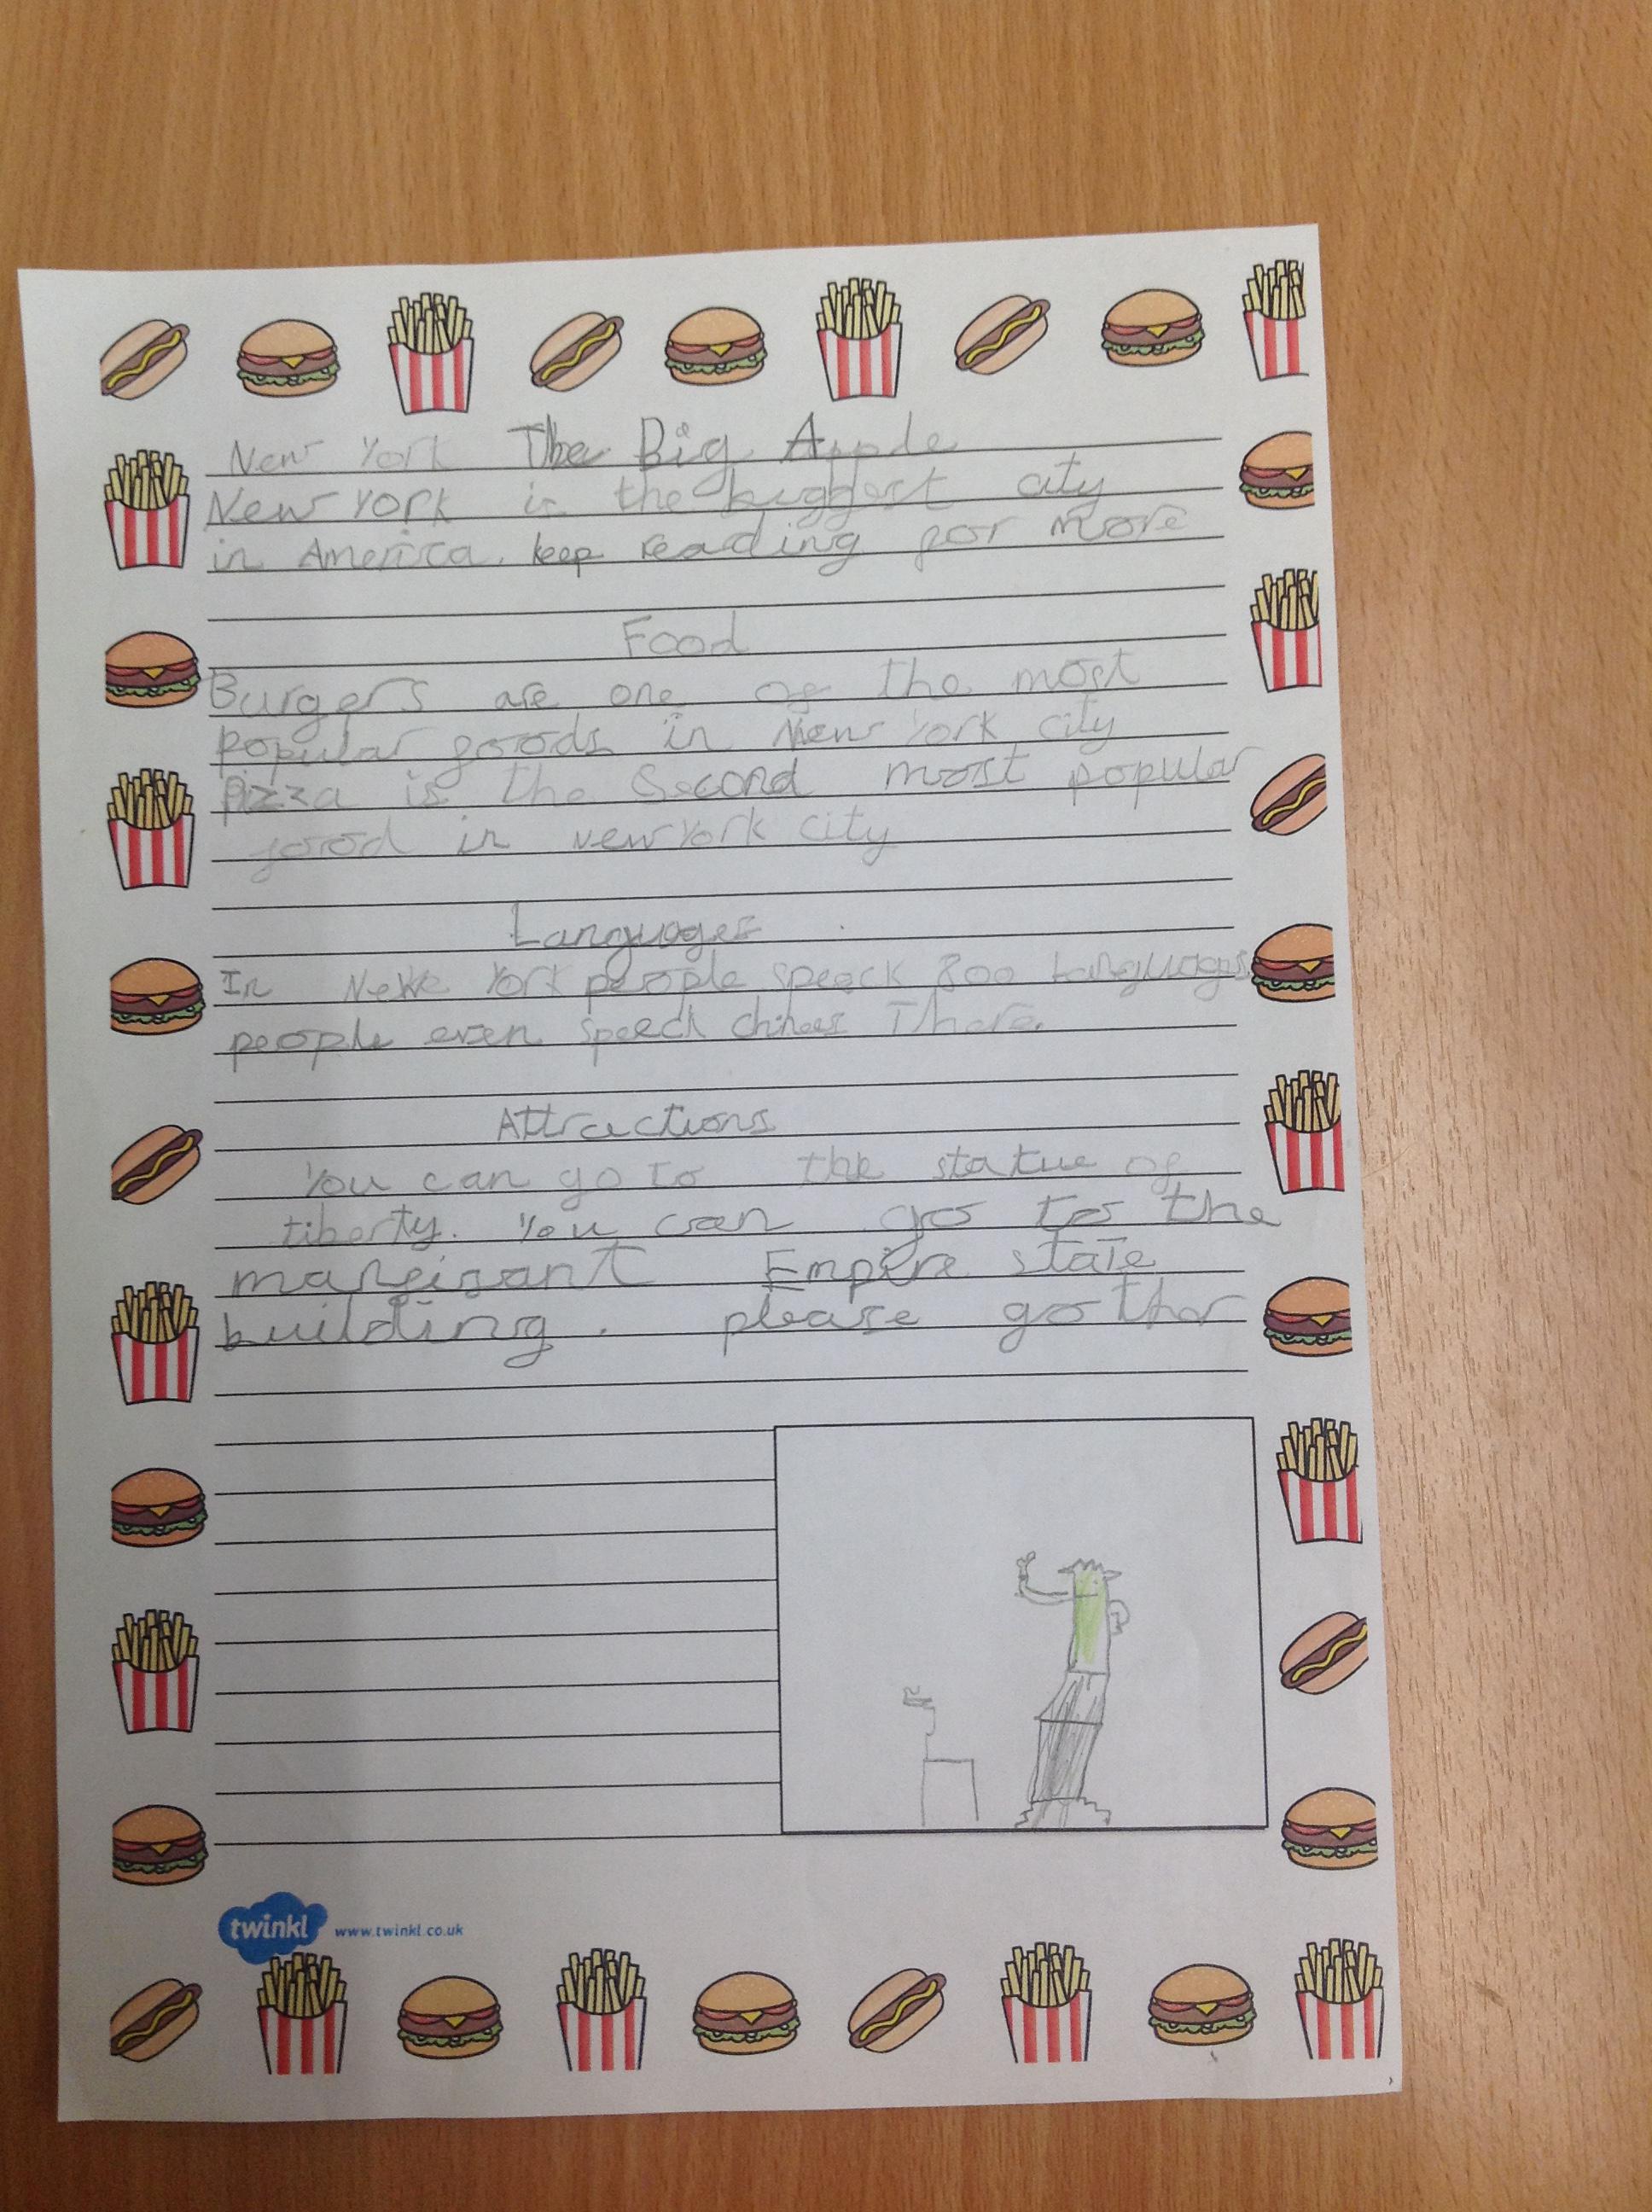 New York The Big Apple
New York is the biggest city
in America. keep reading for more
Food
Burgers are one of the most
popular foods in New York city
Pizza is the Second most popular
food in new York city
Languages
In New York people speack 800 languages
people even speeck chinees There.
Attractions
You can go to the statue of
liberty. You can go to the
mangisant Empire state
building. please go ther
twinkl www.twinkl.co.uk